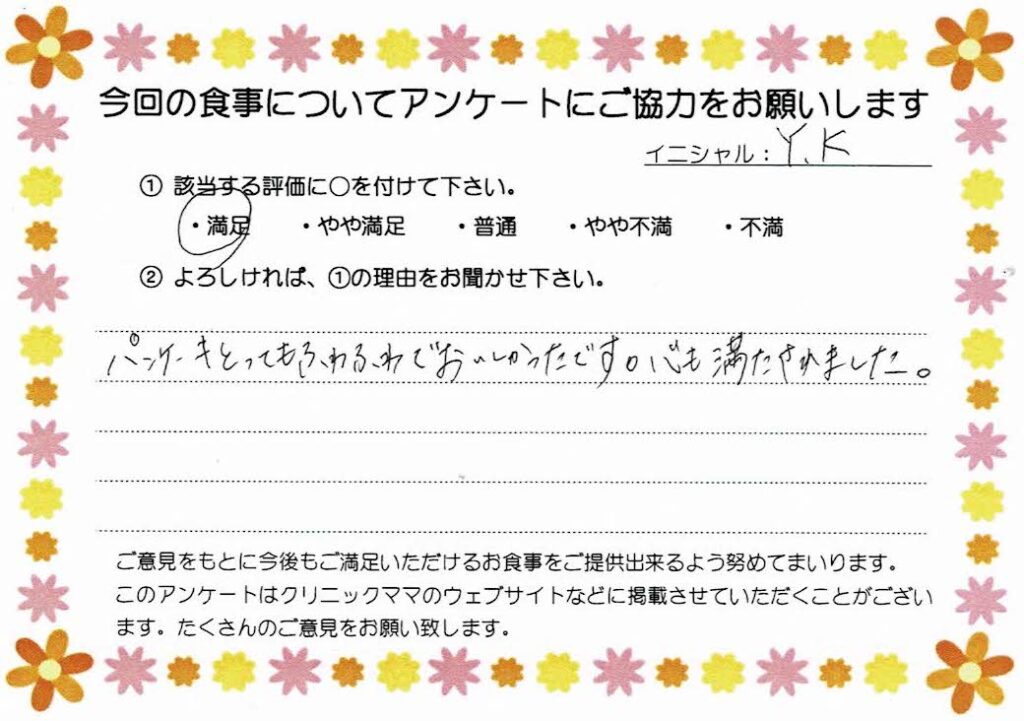 今回の食事についてアンケートにご協力をお願いします
イニシャル：Y.K
① 該当する評価に○を付けて下さい。
・満足 ・やや満足 ・普通 ・やや不満 ・不満
② よろしければ、①の理由をお聞かせ下さい。
パンケーキとってもふわふわでおいしかったです。心も満たされました。
ご意見をもとに今後もご満足いただけるお食事をご提供出来るよう努めてまいります。
このアンケートはクリニックママのウェブサイトなどに掲載させていただくことがござい
ます。たくさんのご意見をお願い致します。